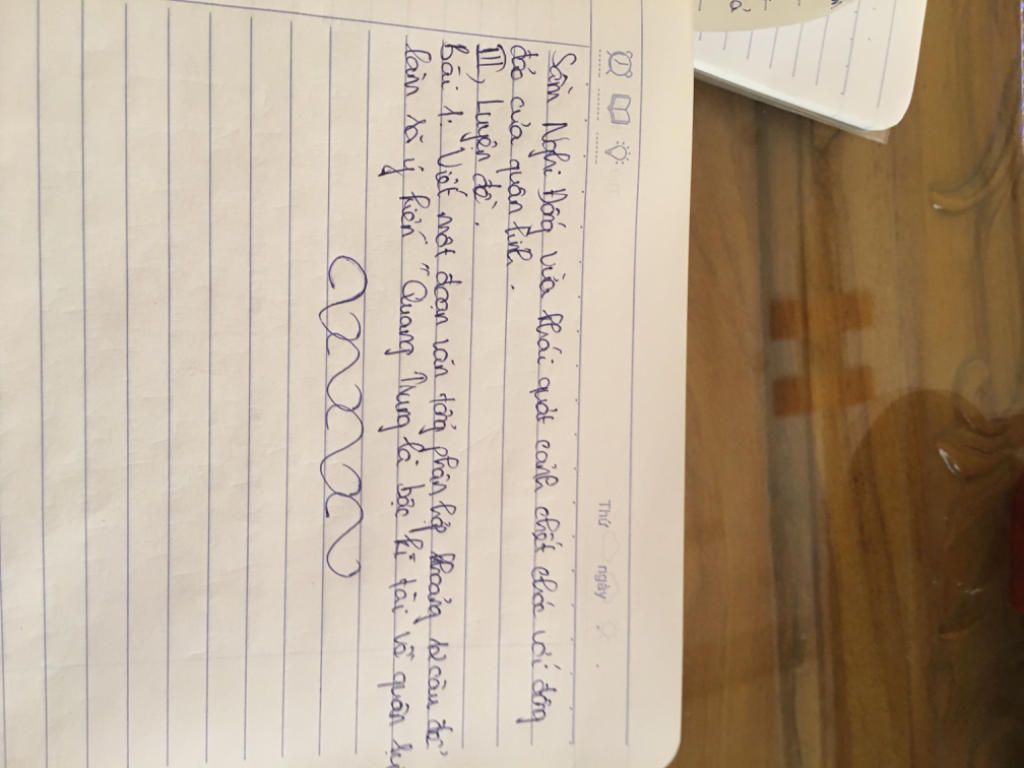 Thứ ngày
Sầm Nghi Đống vừa khái quát cảnh chết chóc vô số đông
đảo của quân Tinh.
III, Luyện đề.
Bài 1: Viết một đoạn văn tổng phân hợp khoảng 12 câu để
làm rõ ý kiến "Quang Trung là bậc kì tài về quân